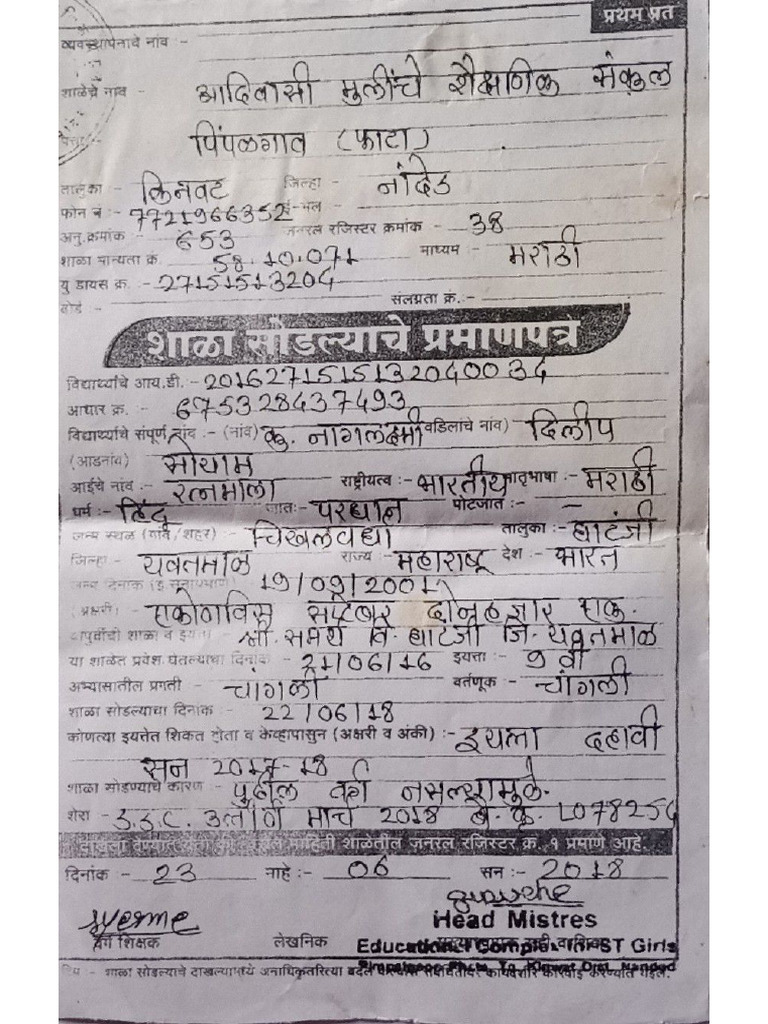 प्रथम प्रत
व्यवस्थापनाचे नांव :-
शाळेचे नाव - आदिवासी मुलींचे शैक्षणिक संकुल
पत्ता :- पिंपळगाव (फाटा)
तालुका :- किनवट जिल्हा - नांदेड
फोन नं :- 7721966352 ई-मेल
अनु.क्रमांक - 653 जनरल रजिस्टर क्रमांक - 38
शाळा मान्यता क्र. 58.10.071 माध्यम - मराठी
यु डायस क्र. :- 27151513204
बोर्ड :- संलग्नता क्रं.:-
शाळा सोडल्याचे प्रमाणपत्र
विद्यार्थ्याचे आय.डी. - 2016271515132040034
आधार क्र. - 675328437493
विद्यार्थ्याचे संपूर्ण नांव - (नांव) कु. नागलक्ष्मी (वडिलांचे नांव) दिलीप
(आडनांव) सोयाम
आईचे नांव - रत्नमाला राष्ट्रीयत्व :- भारतीय मातृभाषा :- मराठी
धर्म :- हिंदू जात:- परधान पोटजात :- -
जन्म स्थळ (गांव/शहर) :- चिखलवर्धा तालुका :- घाटंजी
जिल्हा - यवतमाळ राज्य - महाराष्ट्र देश :- भारत
जन्म दिनांक (इ.सनाप्रमाणे) 19/09/2001
(अक्षरी) एकोणविस सप्टेंबर दोन हजार एक.
यापुर्वीची शाळा व इयत्ता - श्री. समर्थ वि. घाटंजी जि. यवतमाळ
या शाळेत प्रवेश घेतल्याचा दिनांक - 21/06/16 इयत्ता :- 9 वी
अभ्यासातील प्रगती - चांगली वर्तणूक :- चांगली
शाळा सोडल्याचा दिनांक :- 22/06/18
कोणत्या इयत्तेत शिकत होता व केव्हापासुन (अक्षरी व अंकी) :- इयत्ता दहावी
सन 2017-18
शाळा सोडण्याचे कारण - पुढील वर्ग नसल्यामुळे.
शेरा - S.S.C. उत्तीर्ण मार्च 2018 बै. क्र. L078254
दाखला देण्यात येतो की, वरील माहिती शाळेतील जनरल रजिस्टर क्र. १ प्रमाणे आहे.
दिनांक :- 23 माहे :- 06 सन :- 2018
Head Mistres
वर्ग शिक्षक लेखनिक Educational Complex For ST Girls
टिप :- शाळा सोडल्याचे दाखल्यामध्ये अनाधिकृतरित्या बदल केल्यास संबंधितांवर कायदेशीर कारवाई करण्यात येईल.